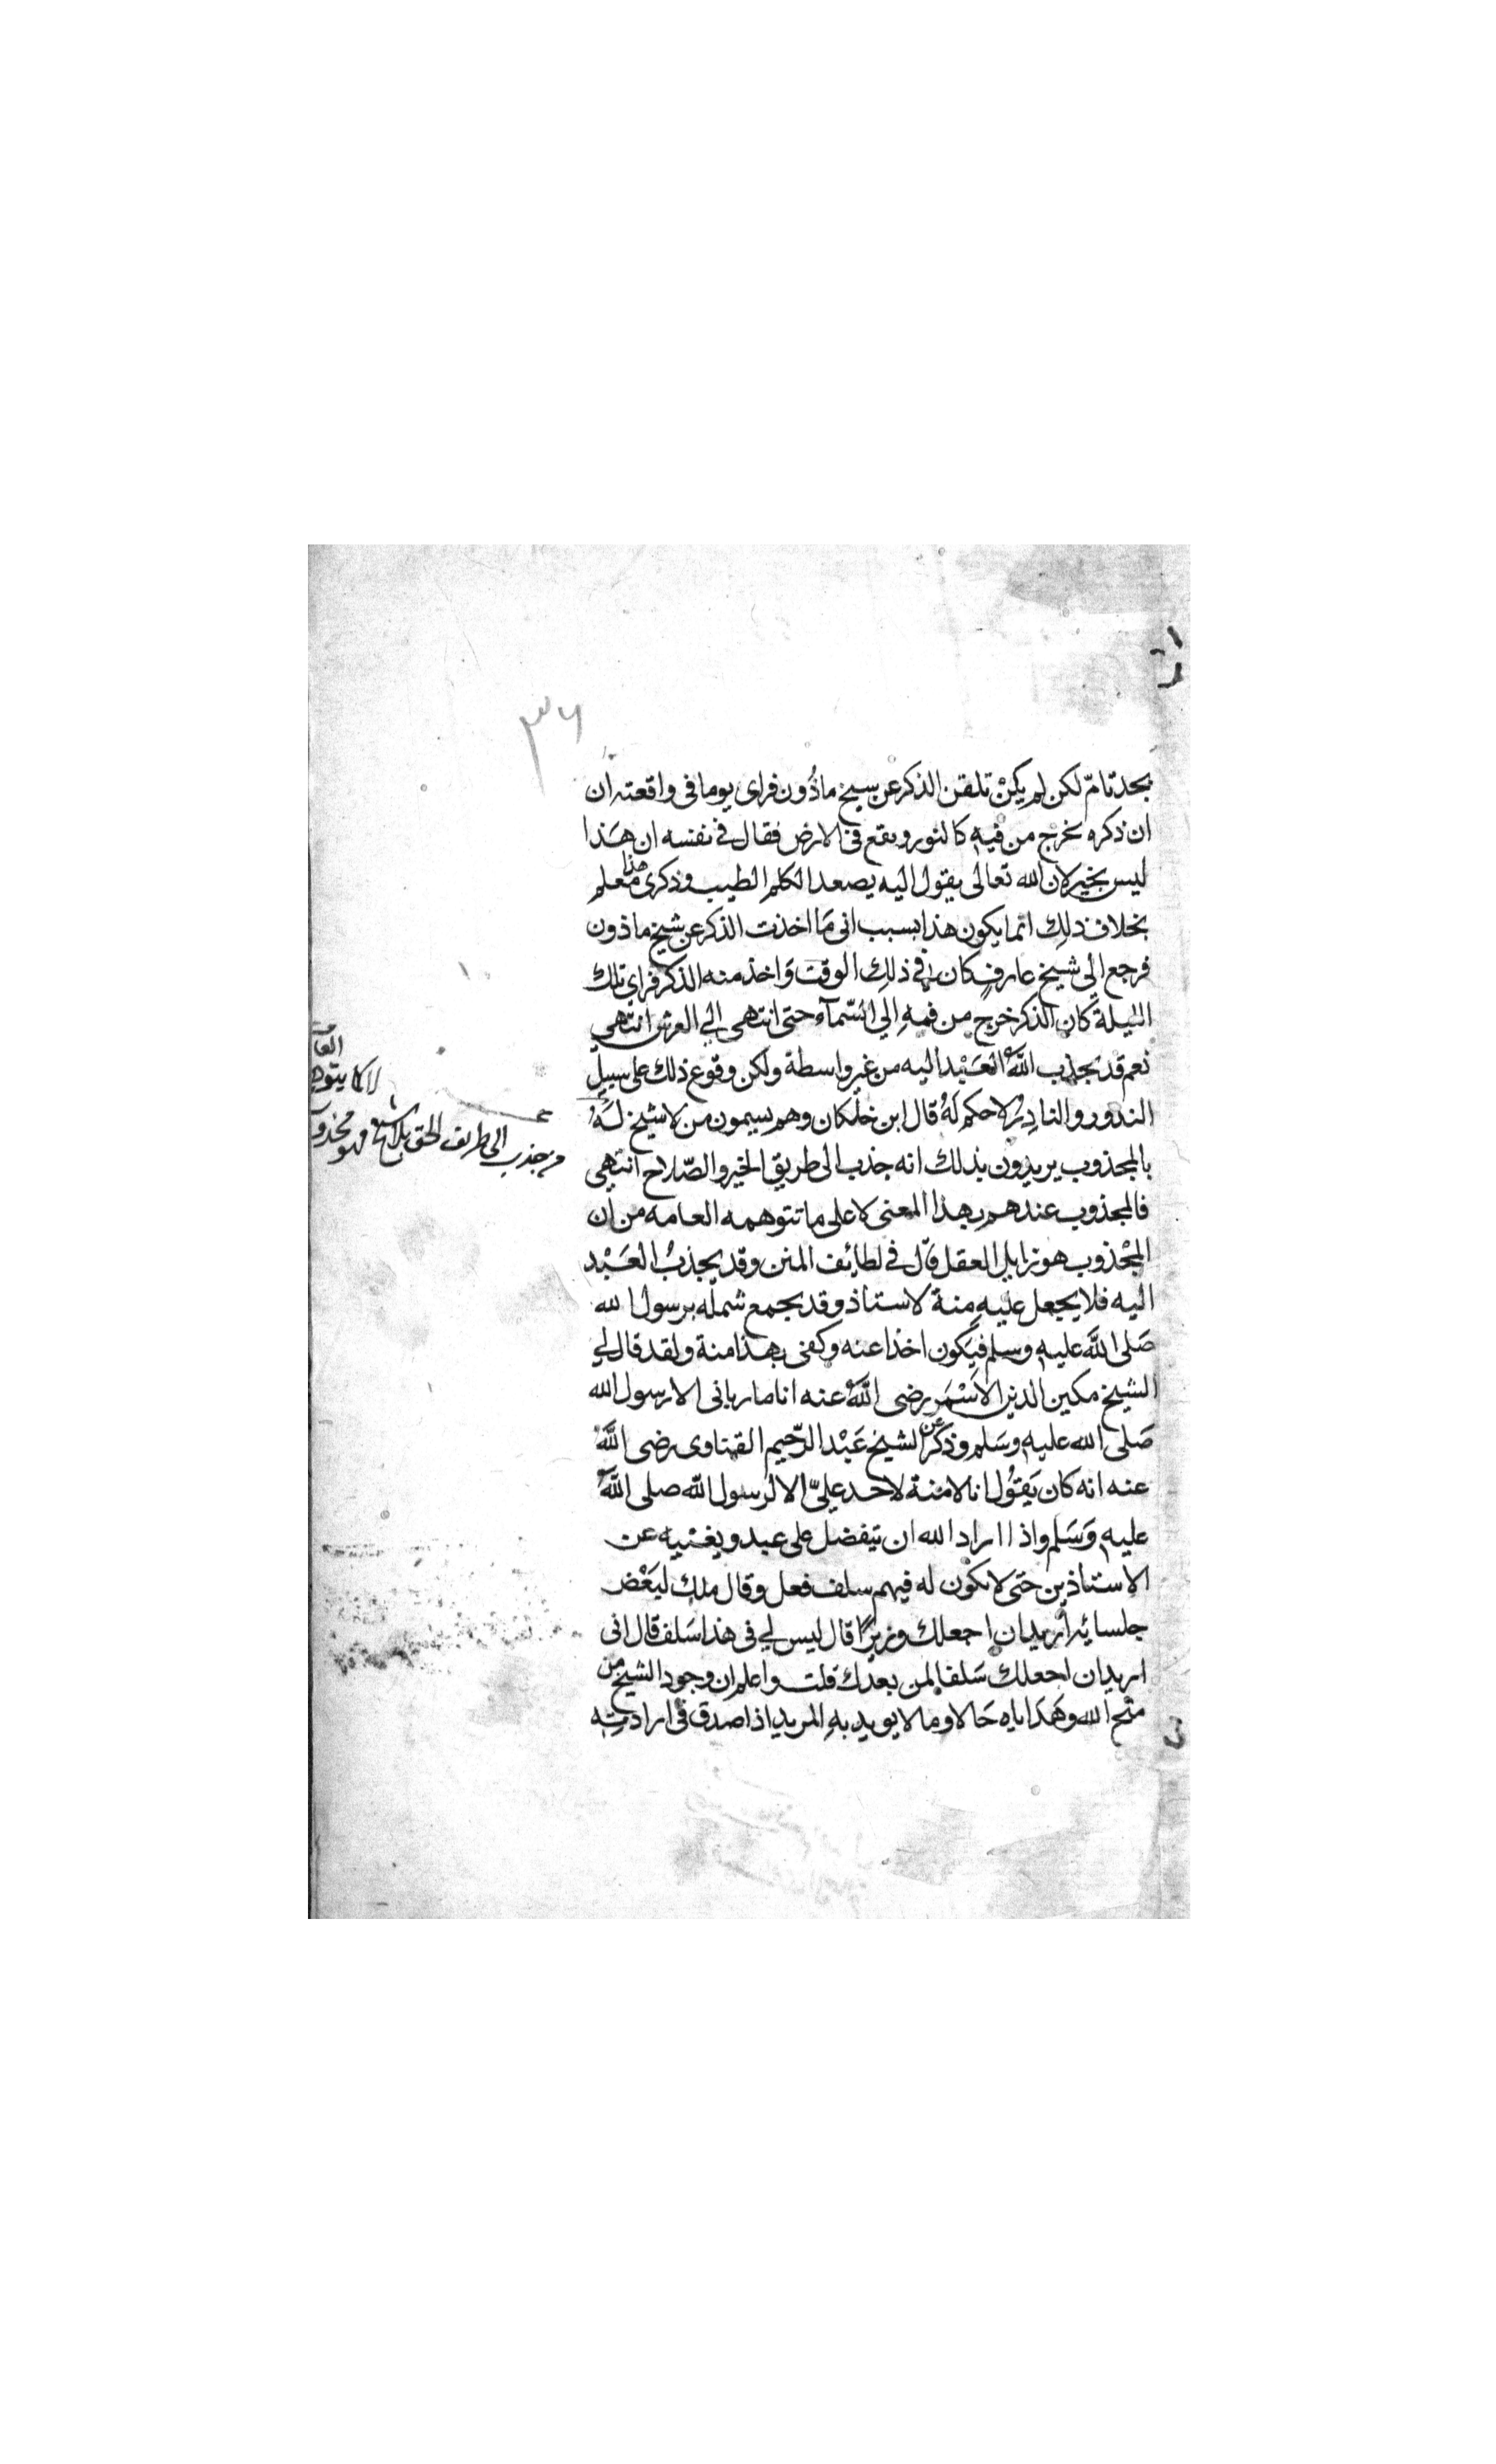 ٣٦
بجد تامّ لكن لم يكنْ تلقن الذكر عن سيخ ماذُون فراى يوما فى واقعته ان
ان ذكره يخرج من فيه كالنور ويقع فى الارض فقال فى نفسه ان هَذا
ليس بخير لان الله تعالى يقول اليه يصعد الكلم الطيب وذكرى هذا
بخلاف ذلك انما يكون هذا بسبب انى مَا اخذت الذكر عن شيخ ماذون
فرجع الي شيخ عارفٍ كان فى ذلك الوقت وَاخذ منه الذكر فراى تلك
الليلة كَان الذكر خرج من فمهِ الي السّمآء حتى انتهى الي العرش انتهي
نعم قد يجذب اللّٰهُ العَبْد اليه من غير واسطة ولكن وقوع ذلك على سبيل
الندور والنادِرُ لا حكم لَهُ قال ابن خلّكان وهم يسمون من لا شيخ لَهُ
بالمجذوب يريدون بذلك انه جذب الى طريق الخير والصّلاح انتهي
فالمجذوب عندهم بهذا المعنى لا على ما تتوهمه العامه من ان
المجْذوب هو زايل العقل قال فى لطائف المنن وقد يجذبُ العَبْد
اليه فلا يجعل عليهِ مِنة لاستاذ وقد يجمع شمله برسول الله
صَلى اللّٰه عليه وسلم فيَكون اخذا عنه وكفى بهذا منة ولقد قال لي
الشيخ مكين الدين الاَسْمَر رضى اللّٰهُ عنه انا ما ربانى الا رسول الله
صَلى الله عليه وسَلم وذكر عن الشيخ عَبْد الرّحيم القناوى رضى اللّٰه
عنه انه كان يَقوُل انا لا منة لاحد عليّ الا لرسول اللّٰه صلى اللّٰهُ
عليه وَسَلم واذا اراد الله ان يتفضل على عبد ويغنيه عن
الاستاذين حتى لا يكون له فيهم سلف فعل وقال ملك لبَعْض
جلسائه اريد ان اجعلك وزيرًا قال ليس لي فى هذا سَلف قال انى
اريد ان اجعلك سَلفا لمن بعدك قلت واعلم ان وجود الشيخ من
منح الله وهَدَاياه حَالا ومالا يويد بهِ المريد اذا صدق فى ارادته
من جذب الى طريق الحق بلا شيخ فهو مجذو
لا كما يتوه
العا